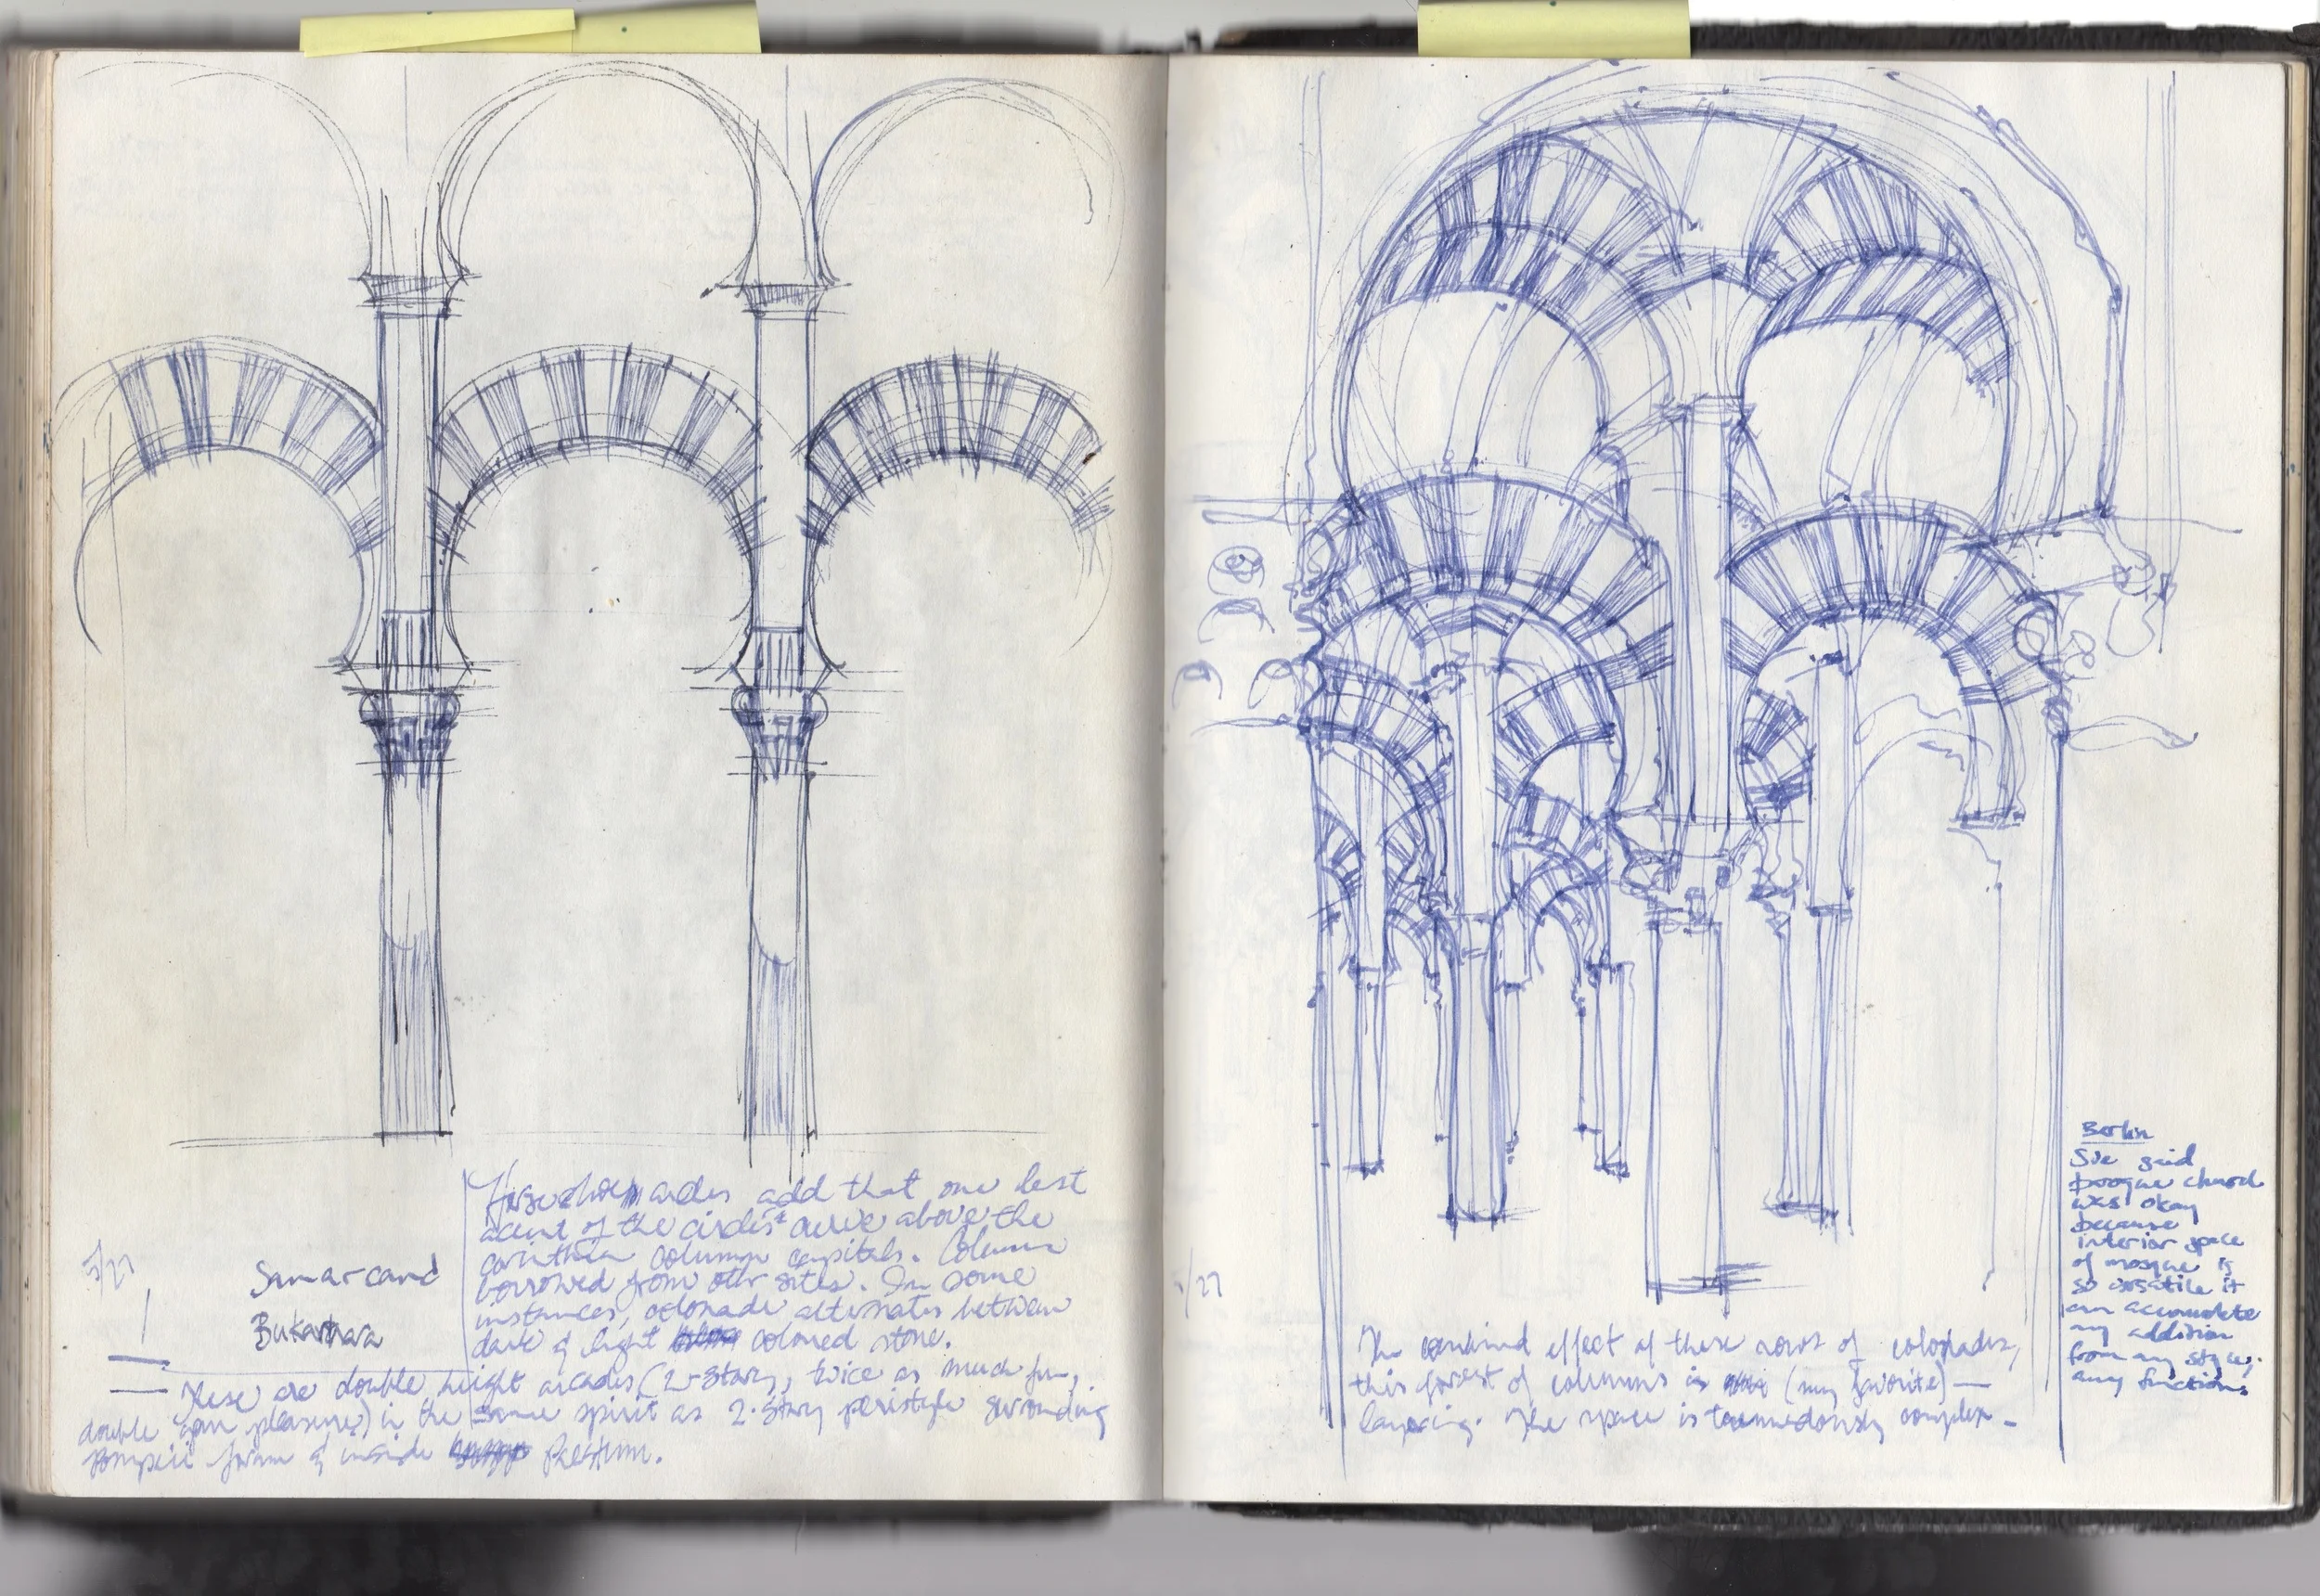 5/27
Samarcand
Bukarhaa
Horseshoe arches add that one last
accent of the circles' curve above the
corinthian column capitals. Columns
borrowed from other sites. In some
instances, colonade alternates between
dark & light coloned stone.
These are double height arcades, (2-story, twice as much fun,
double your pleasure) in the same spirit as 2-story peristyle surrounding
Pompeii forum & inside Paestum.
5/27
The combined effect of these rows of colonades,
this forest of columns is (my favorite) —
layering. The space is tremendously complex -
Berlin
Sue said
baroque church
was okay
because
interior space
of mosque is
so versatile it
can accomodate
any addition
from any style,
any functions